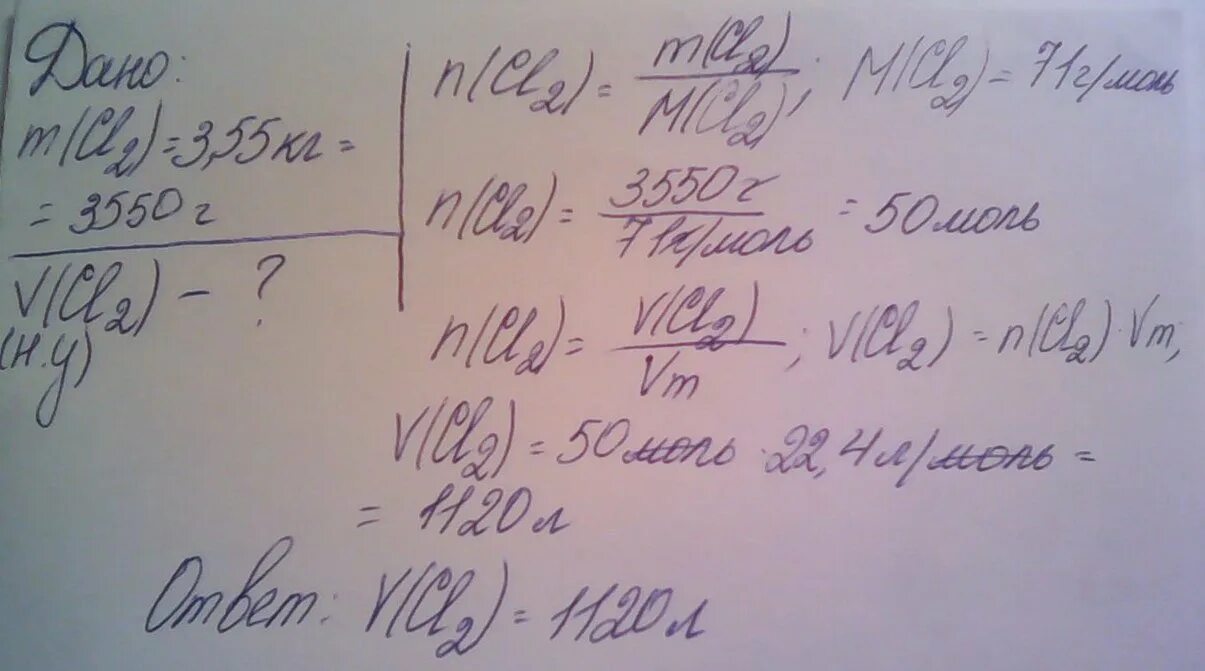 Дано:
m(Cl₂)=3,55кг =
= 3550 г
V(Cl₂) – ?
(н.у)
n(Cl₂) = m(Cl₂) / M(Cl₂); M(Cl₂) = 71г/моль
n(Cl₂) = 3550 г / 71г/моль = 50 моль
n(Cl₂) = V(Cl₂) / Vm ; V(Cl₂) = n(Cl₂) · Vm;
V(Cl₂) = 50 моль · 22,4 л/моль =
= 1120 л
Ответ: V(Cl₂) = 1120 л